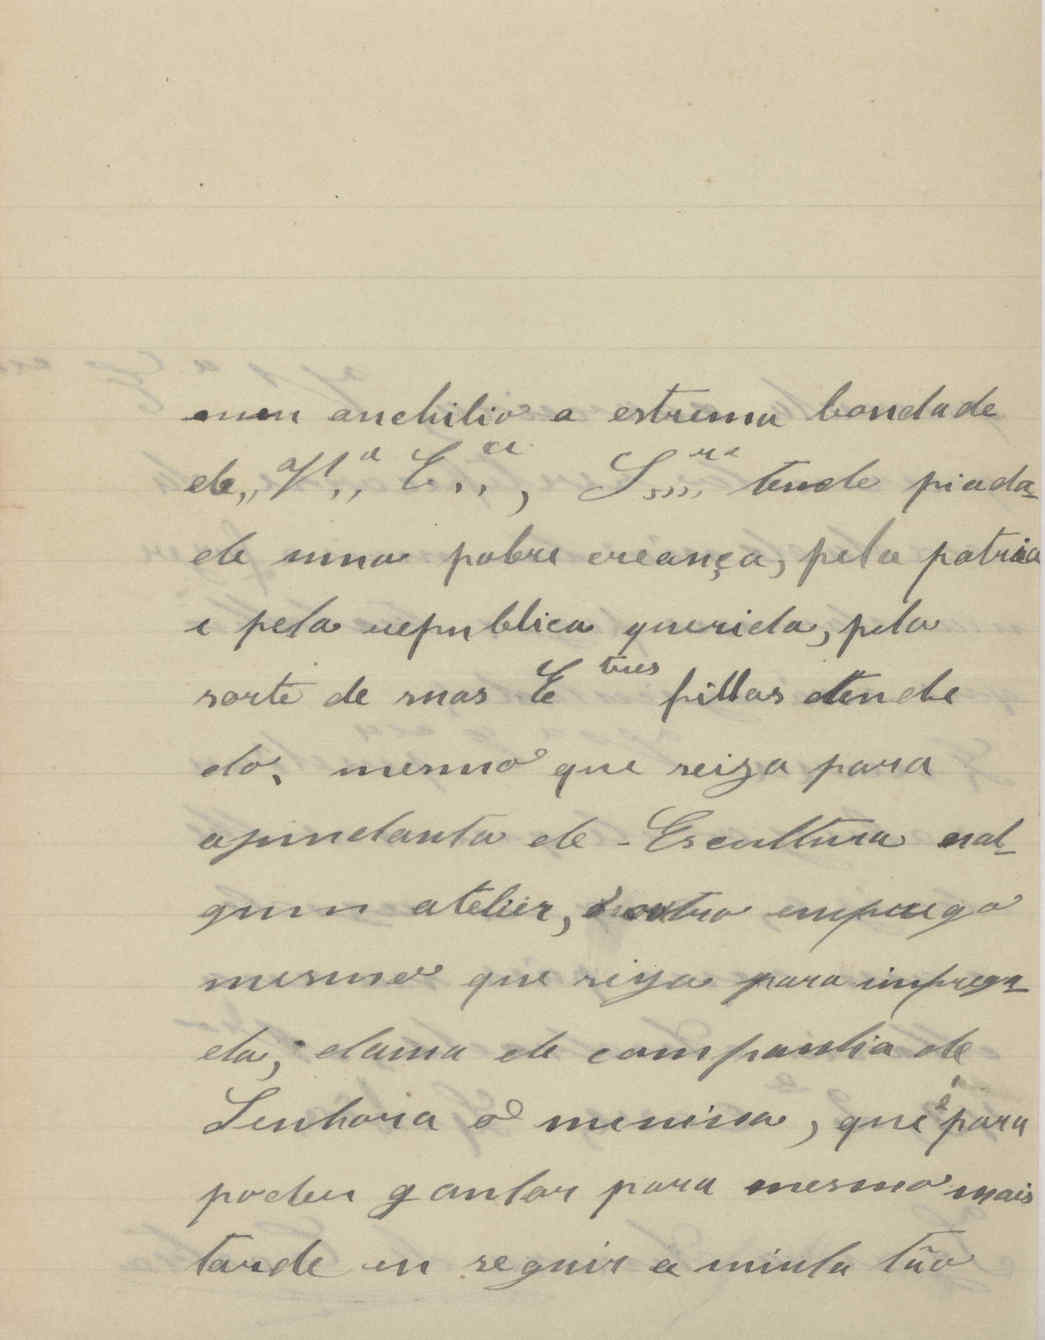 num auchilio a estrema bondade
de,, V.ª,, E..ᶜⁱᵃ, S,,,,ʳᵃ tende piada-
de uma pobre creança, pela patria
e pela republica querida, pela
sorte de suas E tres fillas atende
do, mesmo que seiza para
ajundanta de Escultura nal-
gum atelier, ó outro emprego
mesmo que siga para impreg-
da, dama de companhia de
Senhora ó menina, que é para
poder ganhar para mesmo mais
tarde eu seguir a minha tão